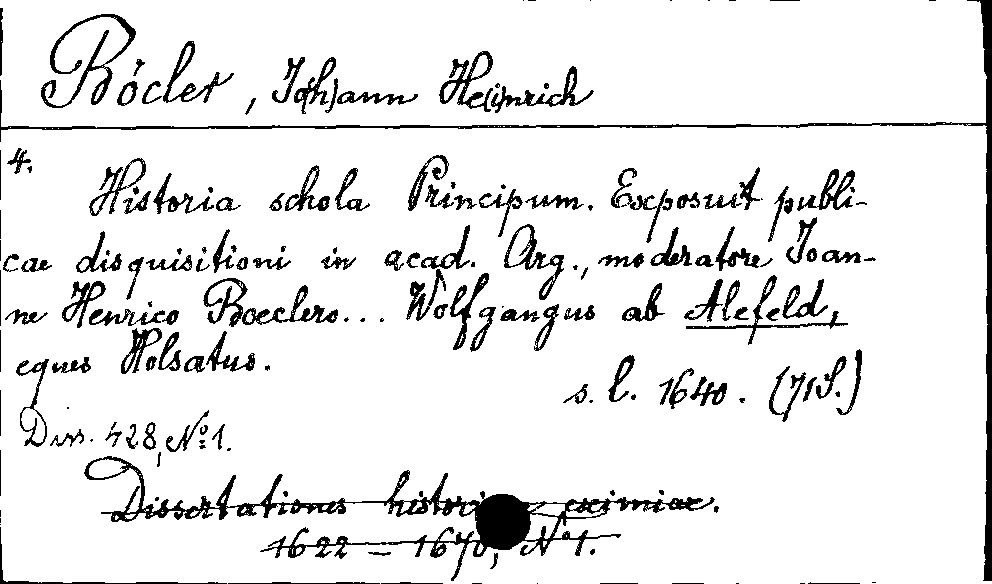 Böcler, Jo(h)ann He(i)nrich
4.
Historia schola Principum. Exposuit publi-
cae disquisitioni in acad. Arg., moderatore Joan-
ne Henrico Boeclero... Wolfgangus ab Alefeld,
eques Holsatus.
s. l. 1640. (71S.)
Diss. 428, No 1.
Dissertationes historicae eximiae.
1622 - 1670, No 1.